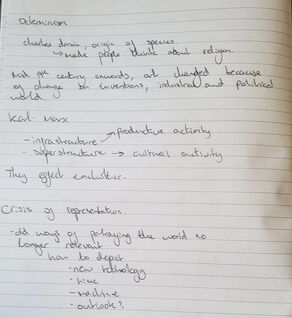 Determinism
charles darwin, origin of species.
↳ made people think about religion.
Mid 19th century onwards, art changed because
of change in inventions, industrial and political
world.
Karl Marx
- infrastructure → productive activity
- superstructure → cultural activity
They effect eachother.
Crisis of representation.
- old ways of portraying the world no
longer relevant
how to depict
- new technology
- time
- machine
- outlook?